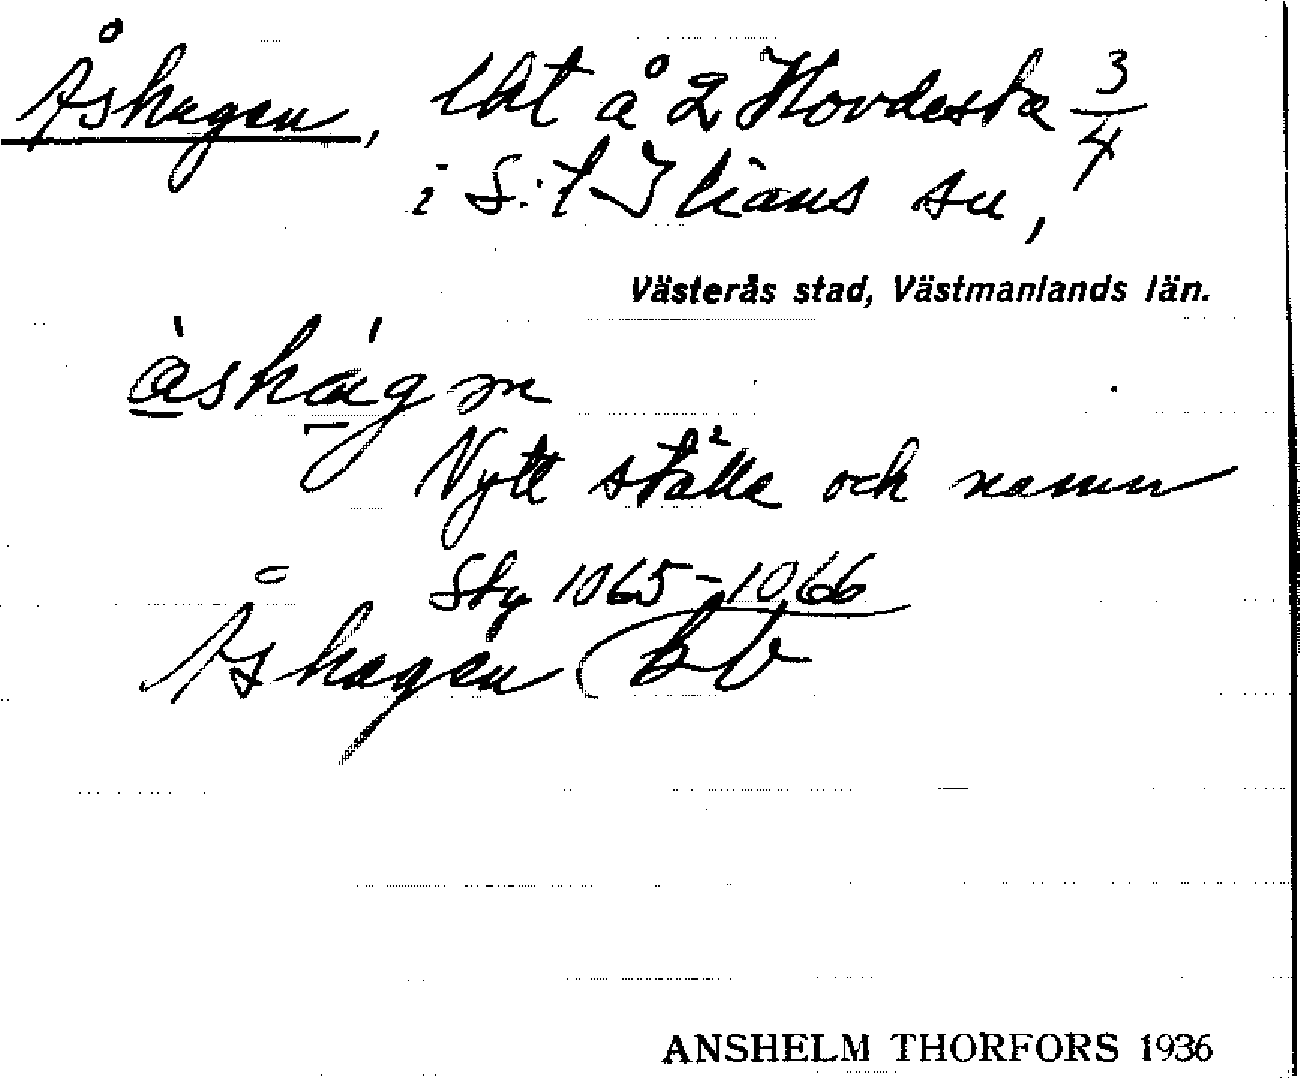 Åshagen, lht å 2 Hovdesta 3/4
i S:t Ilians sn,
Västerås stad, Västmanlands län.
åshágn
Nytt ställe och namn
Sty 1065-1066
Åshagen
ANSHELM THORFORS 1936